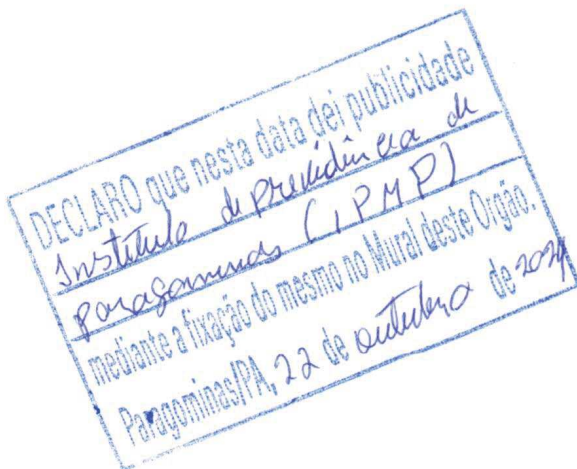 DECLARO que nesta data dei publicidade
Instituto de previdência de
Paragominas (IPMP)
mediante a fixação do mesmo no Mural deste Orgão.
Paragominas/PA, 22 de outubro de 2024